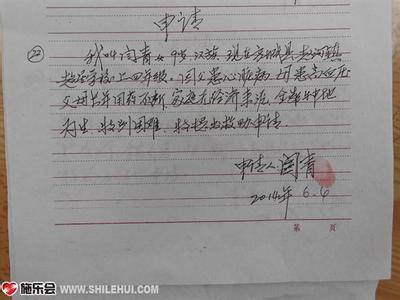 申请
22
我叫闫青 女 9岁 汉族 现在方城县赵河镇
赵河学校上四年级。因父患心脏病，母患高血压
父母长年用药不断，家庭无经济来源，全靠种地
为生，特别困难，特提出救助申请。
申请人：闫青
2014年 6.6
第 页
施乐会
WWW.SHILEHUI.COM